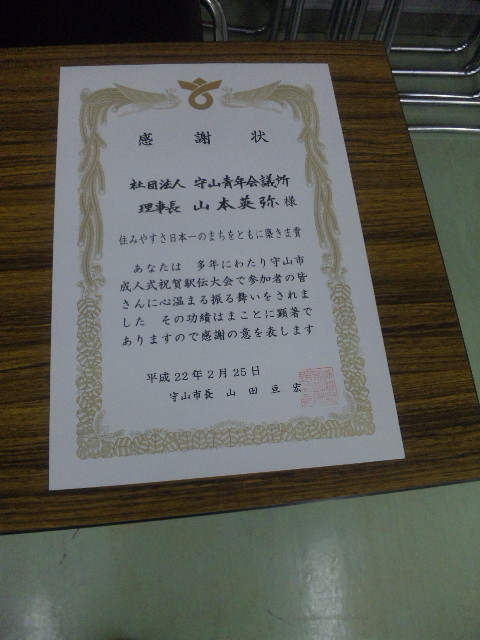 感謝状
社団法人 守山青年会議所
理事長 山本英弥様
住みやすさ日本一のまちをともに築きま賞
あなたは 多年にわたり守山市
成人式祝賀駅伝大会で参加者の皆
さんに心温まる振る舞いをされま
した その功績はまことに顕著で
ありますので感謝の意を表します
平成22年2月25日
守山市長 山田亘宏